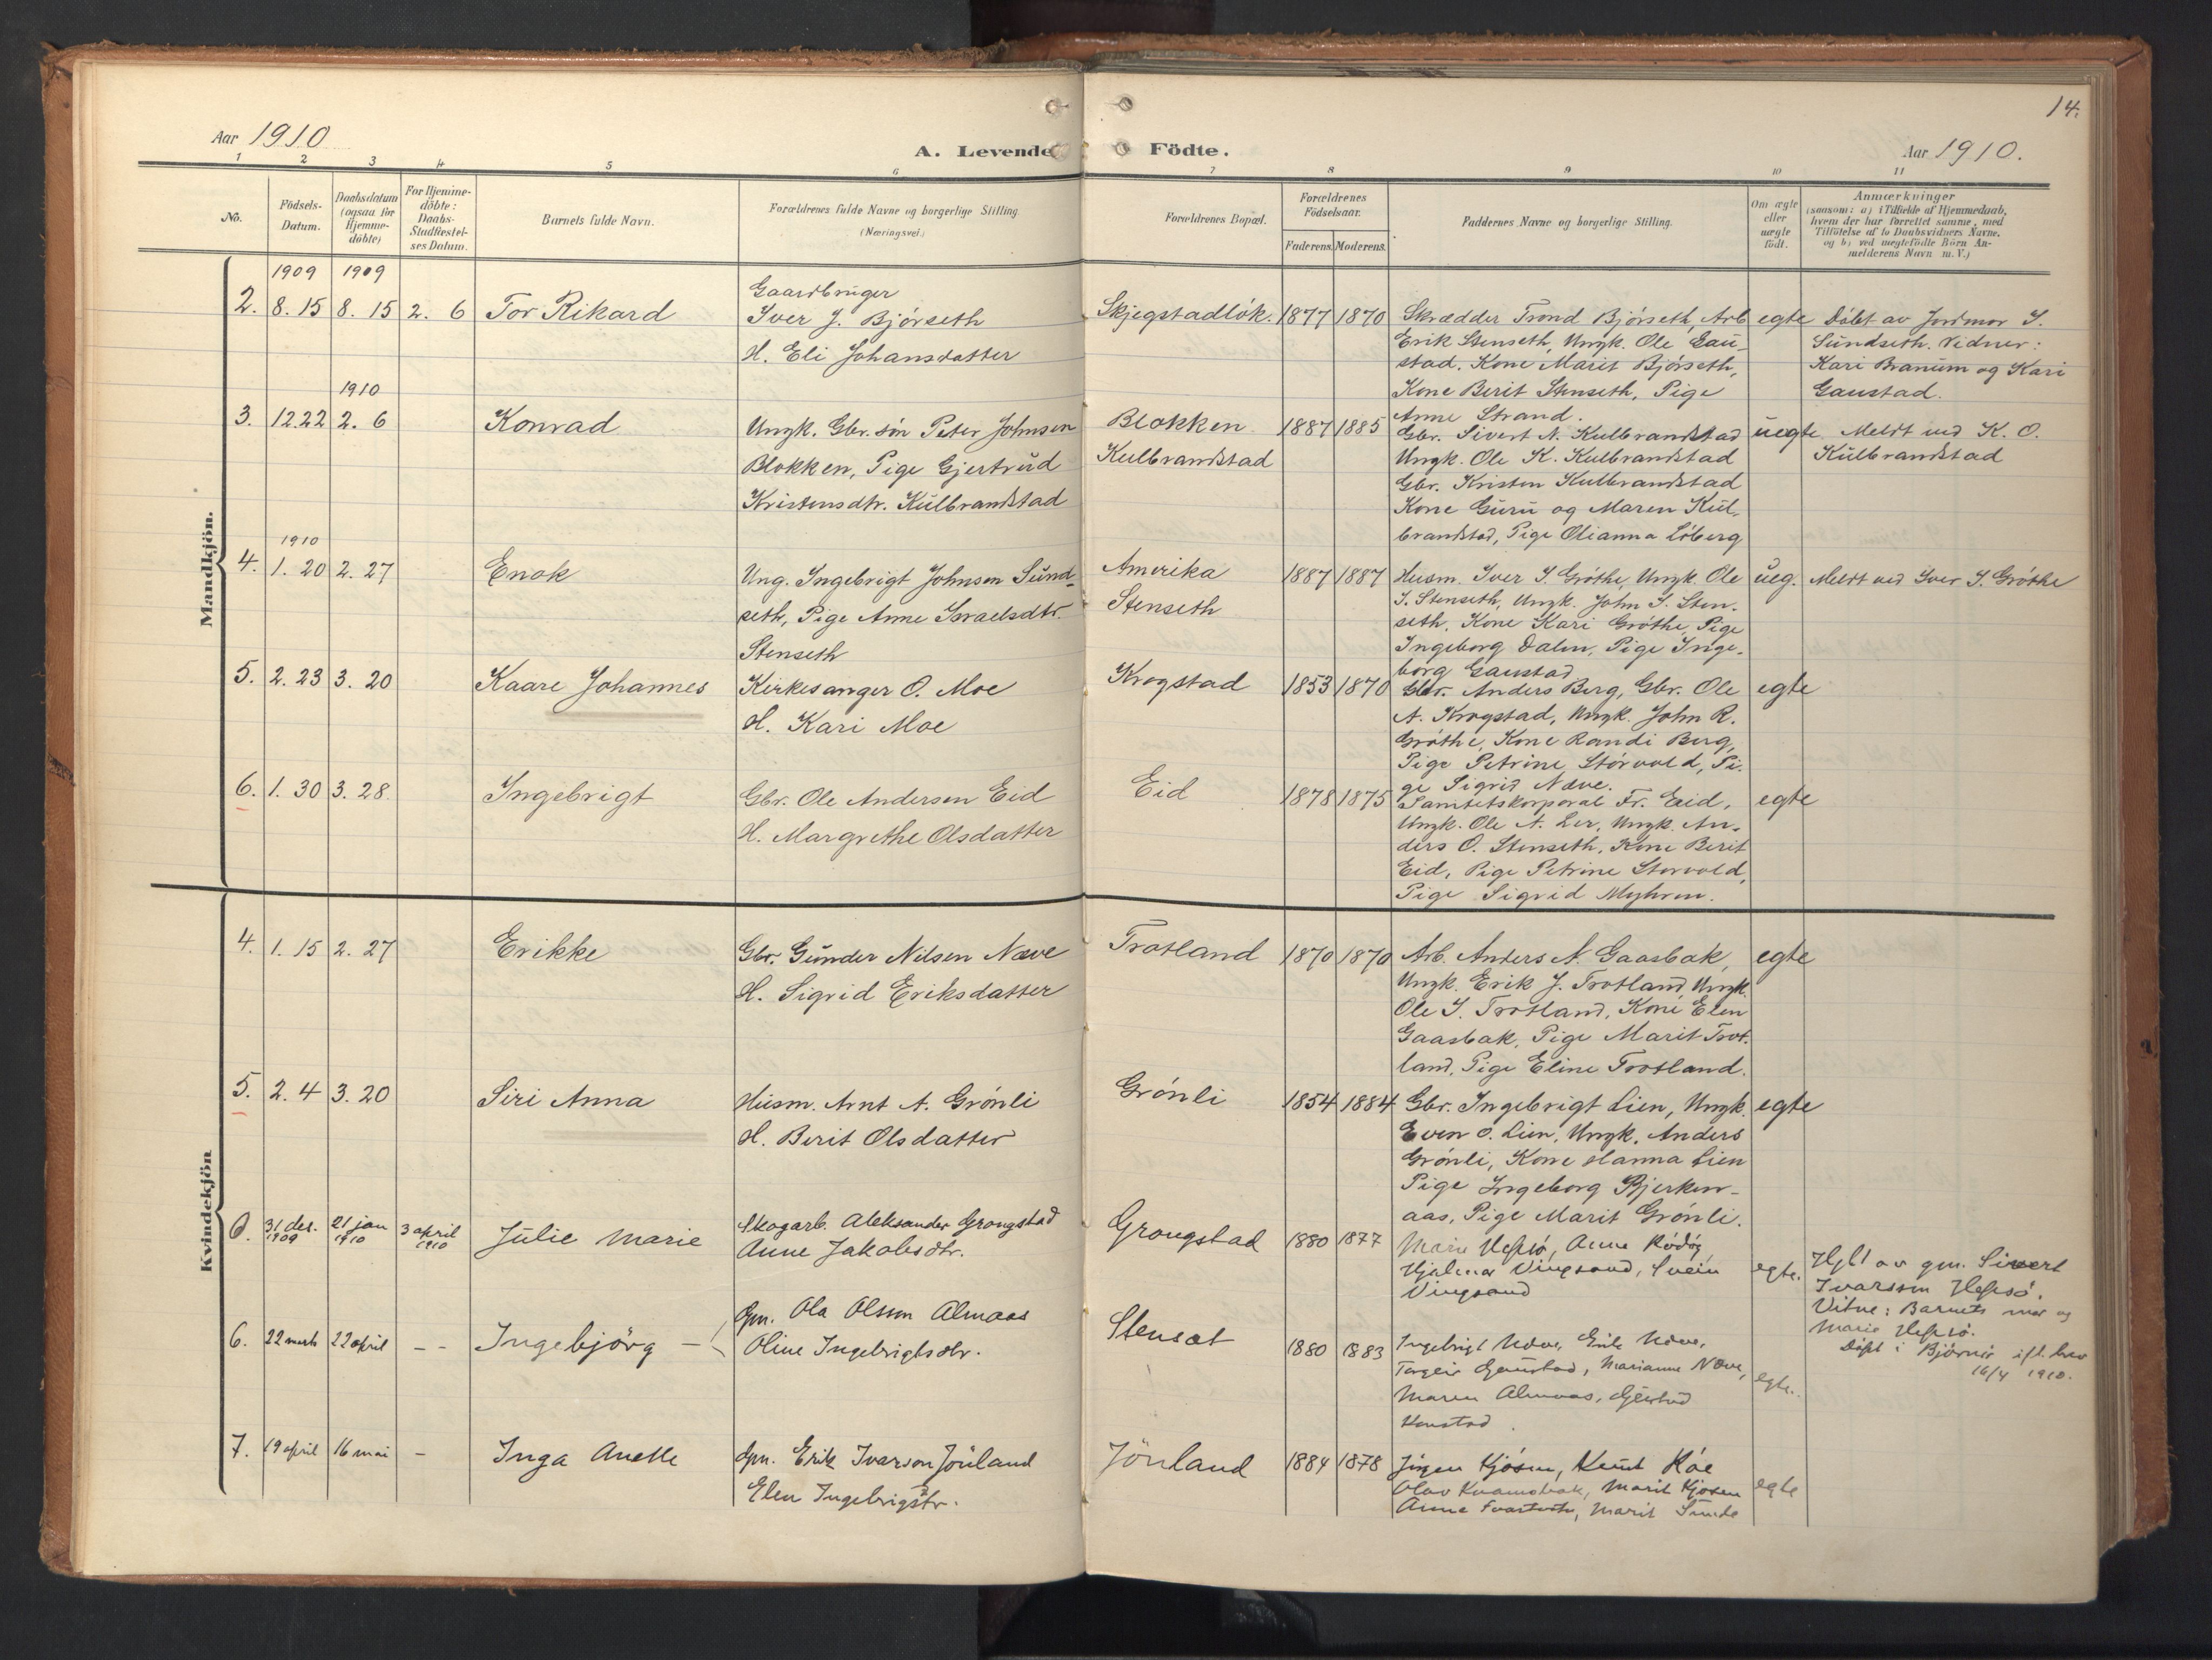 14.
Aar 1910
A. Levende Födte.
Aar 1910.
1 2 3 4 5 6 7 8 9 10 11
No.
Födsels-Datum.
Daabsdatum (ogsaa for Hjemme-döbte)
For Hjemme-döbte: Daabs-Stadfæstel-ses Datum.
Barnets fulde Navn.
Forældrenes fulde Navne og borgerlige Stilling (Næringsvei.)
Forældrenes Bopæl.
Forældrenes Födselsaar.
Faderens. Moderens.
Faddernes Navne og borgerlige Stilling.
Om ægte eller uægte födt.
Anmærkninger
(saasom: a) i Tilfælde af Hjemmedaab,
hvem der har forrettet samme, med
Tilföielse af to Daabsvidners Navne,
og b) ved uægtefödte Börn An-
melderens Navn m. V.)
Mandkjön.
1909 1909
2. 8. 15 8. 15 2. 6 Tor Rikard
Gaardbruger
Iver J. Bjørseth
H. Eli Johansdatter
Skjegstadløk. 1877 1870
Skrædder Trond Bjørseth, Arb
Erik Stenseth, Ungk. Ole Gau-
stad, Kone Marit Bjørseth,
Kone Berit Stenseth, Pige
Anne Strand.
egte
Døbt av Jordmor I.
Sundseth. Vidner:
Kari Branum og Kari
Gaustad.
1910
3. 12.22 2. 6 Konrad
Ungk. Gbr. søn Peter Johnsen
Blokken, Pige Gjertrud
Kristensdtr. Kulbrandstad
Blokken
Kulbrandstad
1887 1885
Gbr. Sivert N. Kulbrandstad
Ungk. Ole K. Kulbrandstad
Gbr. Kristen Kulbrandstad
Kone Guru og Maren Kul-
brandstad, Pige Olianna Løberg
uegte
Meldt ved K. O.
Kulbrandstad
1910
4. 1. 20 2. 27 Enok
Ung. Ingebrigt Johnsen Sund-
seth, Pige Anne Israelsdtr.
Stenseth
Amerika
Stenseth
1887 1887
Husm. Iver I. Grøthe, Ungk. Ole
I. Stenseth, Ungk. John I. Sten-
seth, Kone Kari Grøthe, Pige
Ingeborg Dalen, Pige Inge-
borg Gaustad
ueg.
Meldt ved Iver I. Grøthe
5. 2. 23 3. 20 Kaare Johannes
Kirkesanger O. Moe
H. Kari Moe
Krogstad 1853 1870
Gbr. Anders Berg, Gbr. Ole
A. Krogstad, Ungk. John R.
Grøthe, Kone Randi Berg,
Pige Petrine Storvold, Pi-
ge Sigrid Næve.
egte
6. 1. 30 3. 28. Ingebrigt
Gbr. Ole Andersen Eid
H. Margrethe Olsdatter
Eid 1878 1875
Sanitetskorporal Fr. Eid,
Ungk. Ole A. Ler, Ungk. An-
ders O. Stenseth, Kone Berit
Eid, Pige Petrine Storvold,
Pige Sigrid Myhren.
egte
Kvindekjön
4. 1. 15 2. 27 Erikke
Gbr. Gunder Nilsen Næve
H. Sigrid Eriksdatter
Trotland 1870 1870
Arb. Anders N. Gaasbak,
Ungk. Erik J. Trotland, Ungk.
Ole I. Trotland, Kone Elen
Gaasbak, Pige Marit Trot-
land, Pige Eline Trotland.
egte
5. 2. 4 3. 20 Siri Anna
Husm. Arnt A. Grønli
H. Berit Olsdatter
Grønli 1854 1884
Gbr. Ingebrigt Lien, Ungk.
Even O. Lien, Ungk. Anders
Grønli, Kone Hanna Lien
Pige Ingeborg Bjerken-
aas, Pige Marit Grønli.
egte
6. 31 des. 1909 21 jan 1910 3 april 1910 Julie Marie
Skogarb. Aleksander Grongstad
Anne Jakobsdtr.
Grongstad 1880 1877
Marie Hepsø, Anne Rødøy,
Hjalmar Vingsand, Svein
Vingsand
egte.
Hjdt av gm. Sivert
Ivarsson Hepsø.
Vitne: Barnets mor og
Marie Hepsø.
6. 22 mars 22 april - - Ingebjörg
Gm. Ola Olsson Almaas
Oline Ingebrigtsdtr.
Stensæt 1880 1883
Ingebrigt Næve, Erik Næve,
Torgeir Gaustad, Marianne Næve,
Maren Almaas, Gjertrud
egte.
Døpt i Bjørnør ifl. brev
16/4 1910.
7. 19 april 16 mai - Inga Anette
Gm. Erik Ivarson Jönland
Elen Ingebrigtstr.
Jönland 1884 1878
Jörgen Kjøsen, Knut Røe
Olav Kvamsbak, Marit Kjøsen
Anne, Marit Sunde
egte